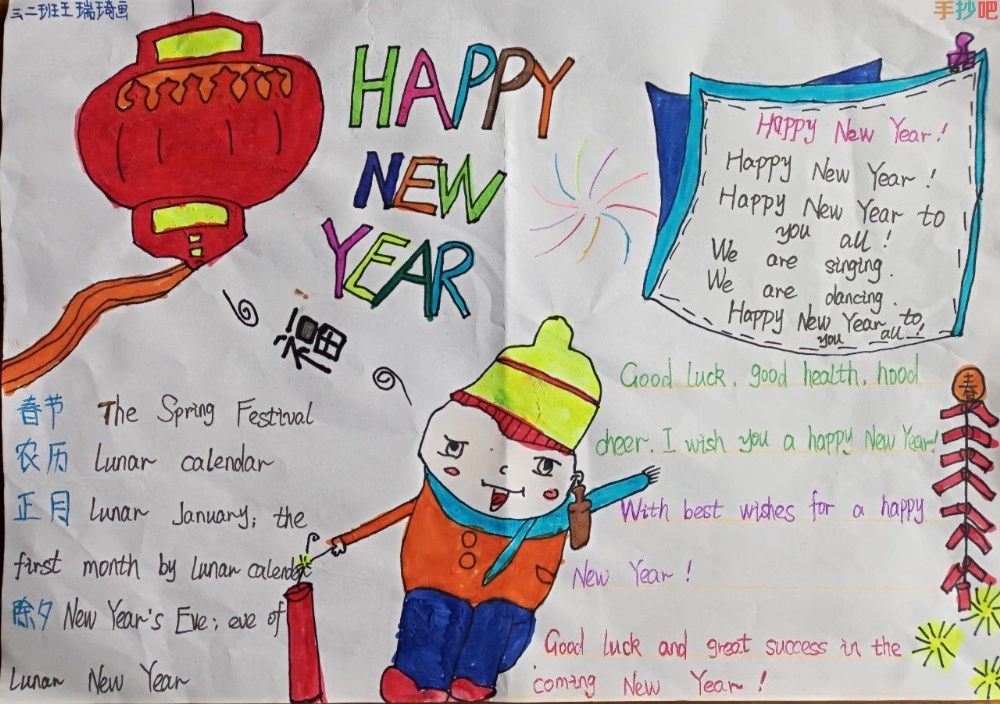 三二班王瑞琦画
手抄吧
HAPPY
NEW
YEAR
福
Happy New Year!
Happy New Year!
Happy New Year to
you all!
We are singing.
We are dancing.
Happy New Year to
you all!
春节 The Spring Festival
农历 Lunar calendar
正月 Lunar January; the
first month by lunar calendar
除夕 New Year's Eve; eve of
Lunar New Year
Good luck, good health, hood
cheer. I wish you a happy New Year!
With best wishes for a happy
New Year!
Good luck and great success in the
coming New Year!
春